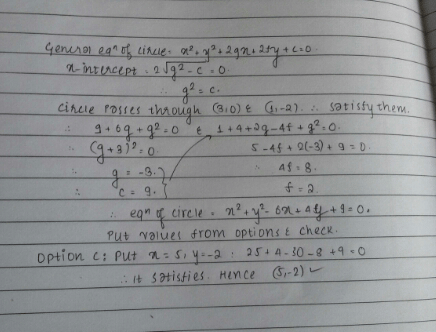 General eqn of circle. x² + y² + 2gx + 2fy + c = 0.
x-intercept. 2√g² - c = 0.
∴ g² = c.
Circle Passes through (3,0) & (1,-2). ∴ satisfy them.
∴ 9 + 6g + g² = 0 & 1 + 4 + 2g - 4f + g² = 0.
∴ (g+3)² = 0. 5 - 4f + 2(-3) + 9 = 0.
∴ g = -3. ∴ 4f = 8.
∴ c = 9. f = 2.
∴ eqn of circle = x² + y² - 6x + 4y + 9 = 0.
Put values from options & check.
Option C: Put x = 5, y = -2 : 25 + 4 - 30 - 8 + 9 = 0
∴ it satisfies. Hence (5,-2) ✓